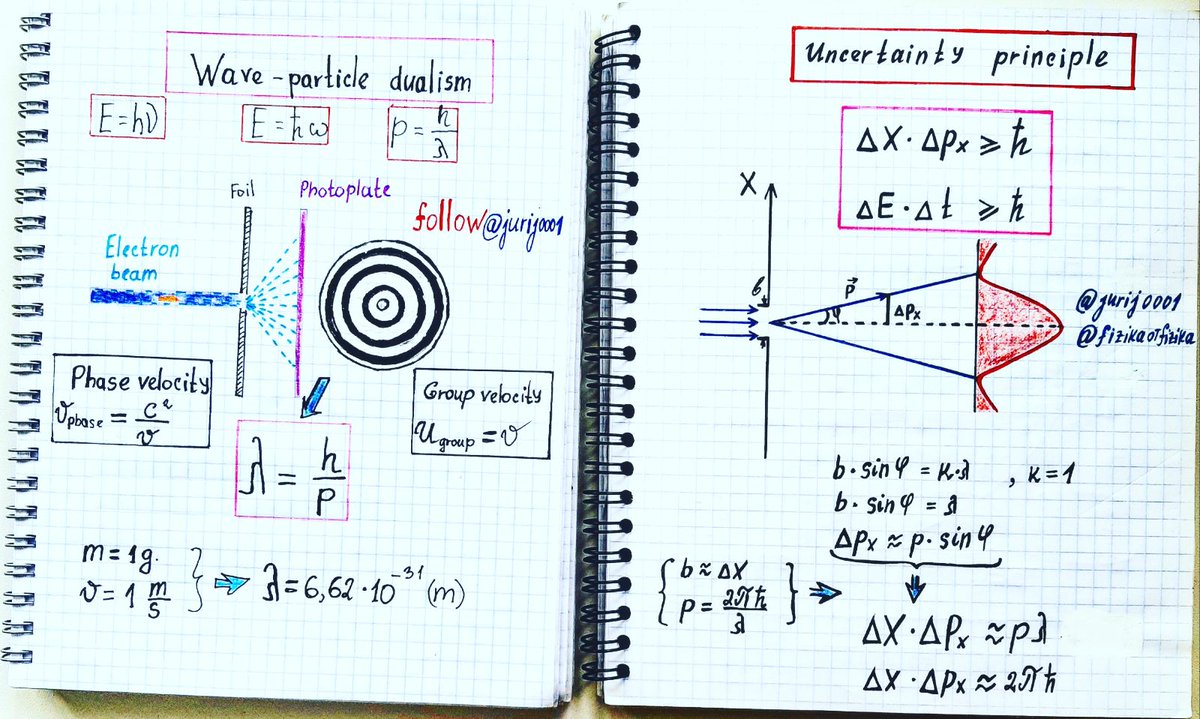 Wave-particle dualism
E = hν
E = ħω
p = h/λ
Foil
Photoplate
follow@jurij0001
Electron
beam
Phase velocity
υphase = c²/υ
Group velocity
Ugroup = υ
λ = h/p
m = 1g.
υ = 1 m/s
λ = 6,62·10⁻³¹ (m)
Uncertainty principle
ΔX·ΔPx ⩾ ħ
ΔE·Δt ⩾ ħ
X
b
p⃗
φ
ΔPx
@jurij0001
@fizikaotfizika
b·sinφ = k·λ , k=1
b·sinφ = λ
ΔPx ≈ p·sinφ
b ≈ ΔX
P = 2πħ/λ
ΔX·ΔPx ≈ pλ
ΔX·ΔPx ≈ 2πħ